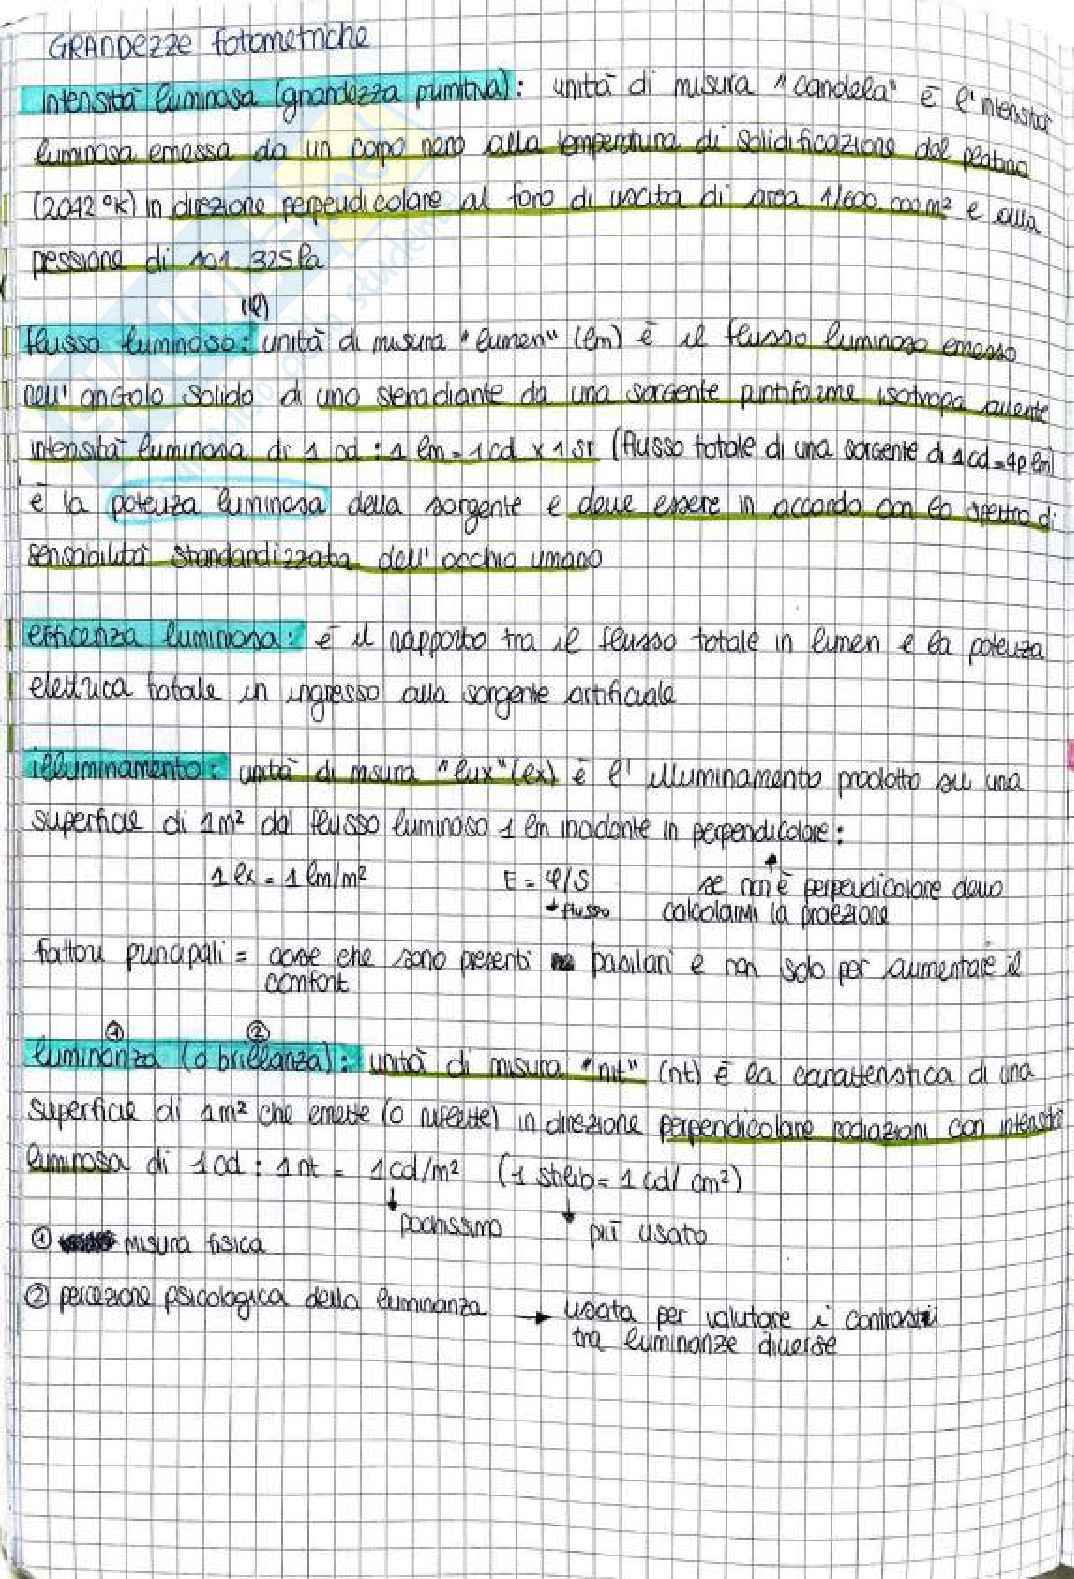 GRANDEZZE fotometriche
intensità luminosa (grandezza primitiva): unità di misura "candela" è l'intensità
luminosa emessa da un corpo nero alla temperatura di solidificazione del platino
(2042 °K) in direzione perpendicolare al foro di uscita di area 1/600.000 m² e alla
pressione di 101 325 Pa
(φ)
flusso luminoso: unità di misura "lumen" (lm) è il flusso luminoso emesso
nell' angolo solido di uno steradiante da una sorgente puntiforme isotropa avente
intensità luminosa di 1 cd : 1 lm = 1 cd x 1 sr (flusso totale di una sorgente di 1 cd = 4p lm)
è la potenza luminosa della sorgente e deve essere in accordo con lo spettro di
sensibilità standardizzata dell' occhio umano
efficenza luminosa: è il rapporto tra il flusso totale in lumen e la potenza
elettrica totale in ingresso alla sorgente artificiale
illuminamento: unità di misura "lux" (lx) è l' illuminamento prodotto su una
superficie di 1m² dal flusso luminoso 1 lm incidente in perpendicolare:
1 lx = 1 lm/m² E = φ/S se non è perpendicolare devo
flusso calcolarmi la proiezione
fattori principali = cose che sono presenti basilari e non solo per aumentare il
comfort
① ②
luminanza (o brillanza): unità di misura "nit" (nt) è la caratteristica di una
superficie di 1m² che emette (o riflette) in direzione perpendicolare radiazioni con intensità
luminosa di 1 cd : 1 nt = 1 cd/m² (1 stilb = 1 cd/ cm²)
pochissimo più usato
① misura fisica
② percezione psicologica della luminanza → usata per valutare i contrasti
tra luminanze diverse